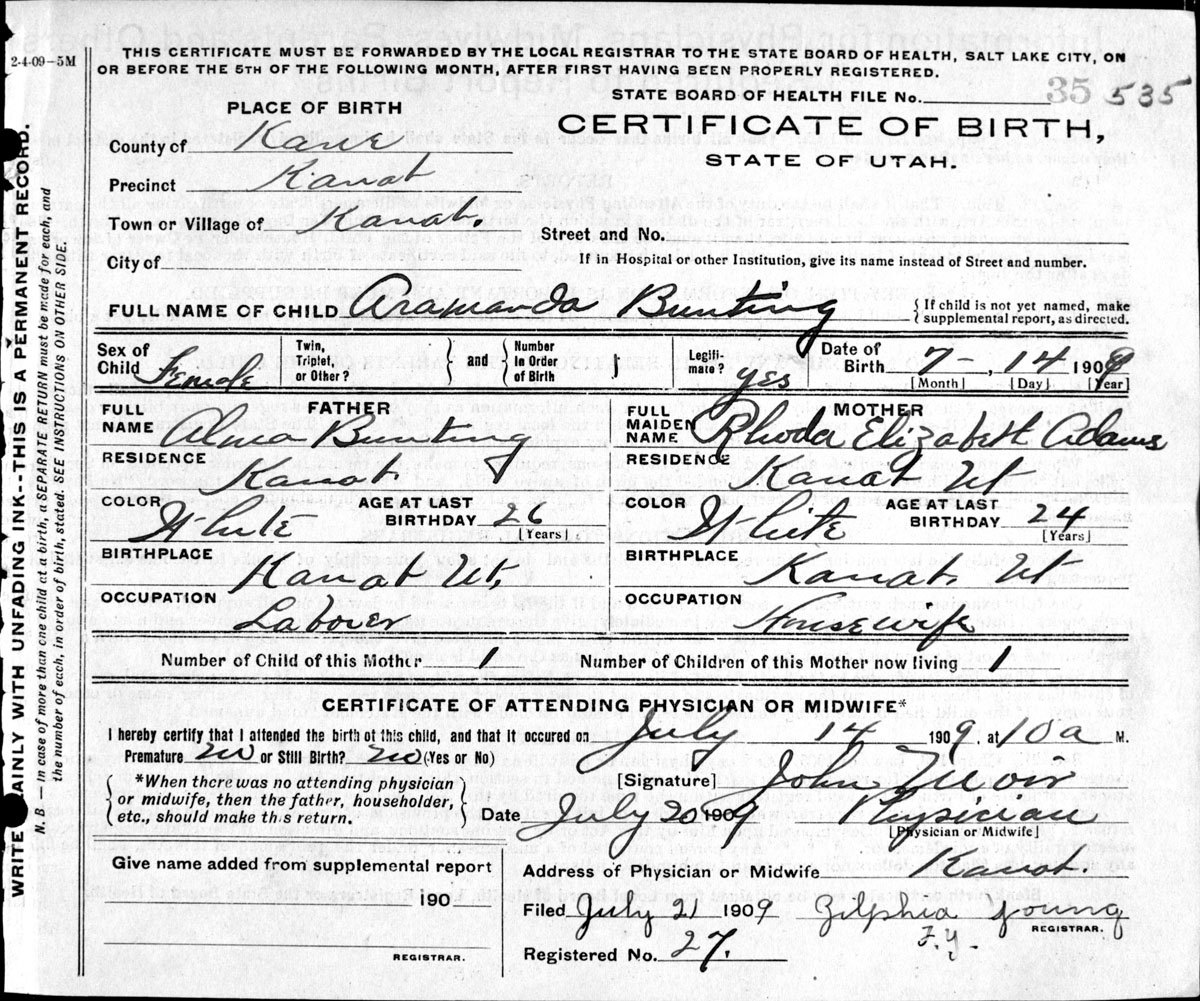 2-4-09-5M
THIS CERTIFICATE MUST BE FORWARDED BY THE LOCAL REGISTRAR TO THE STATE BOARD OF HEALTH, SALT LAKE CITY, ON
OR BEFORE THE 5TH OF THE FOLLOWING MONTH, AFTER FIRST HAVING BEEN PROPERLY REGISTERED.
STATE BOARD OF HEALTH FILE No. 35 535
PLACE OF BIRTH
CERTIFICATE OF BIRTH,
STATE OF UTAH.
County of Kane
Precinct Kanab
Town or Village of Kanab.
Street and No.
City of
If in Hospital or other Institution, give its name instead of Street and number.
FULL NAME OF CHILD Aramanda Bunting { If child is not yet named, make supplemental report, as directed.
Sex of Child Female Twin, Triplet, or Other? } and { Number in Order of Birth Legiti- mate? yes Date of Birth 7 - , 14 1909
[Month] [Day] [Year]
FATHER MOTHER
FULL NAME Alma Bunting FULL MAIDEN NAME Rhoda Elizabeth Adams
RESIDENCE Kanab. RESIDENCE Kanab Ut
COLOR White AGE AT LAST BIRTHDAY 26 [Years] COLOR White AGE AT LAST BIRTHDAY 24 [Years]
BIRTHPLACE Kanab Ut. BIRTHPLACE Kanab. Ut
OCCUPATION Laborer OCCUPATION Housewife
Number of Child of this Mother 1 Number of Children of this Mother now living 1
CERTIFICATE OF ATTENDING PHYSICIAN OR MIDWIFE*
I hereby certify that I attended the birth of this child, and that it occured on July 14 1909. at 10 a M.
Premature no or Still Birth? no (Yes or No)
{ *When there was no attending physician or midwife, then the father, householder, etc., should make this return. }
[Signature] John
Date July 20 1909 Physician
[Physician or Midwife]
Give name added from supplemental report
190
REGISTRAR.
Address of Physician or Midwife Kanab.
Filed July 21 1909 Zilphea Young
REGISTRAR.
F.Y.
Registered No. 27.
WRITE PLAINLY WITH UNFADING INK--THIS IS A PERMANENT RECORD.
N. B. — In case of more than one child at a birth, a SEPARATE RETURN must be made for each, and
the number of each, in order of birth, stated. SEE INSTRUCTIONS ON OTHER SIDE.